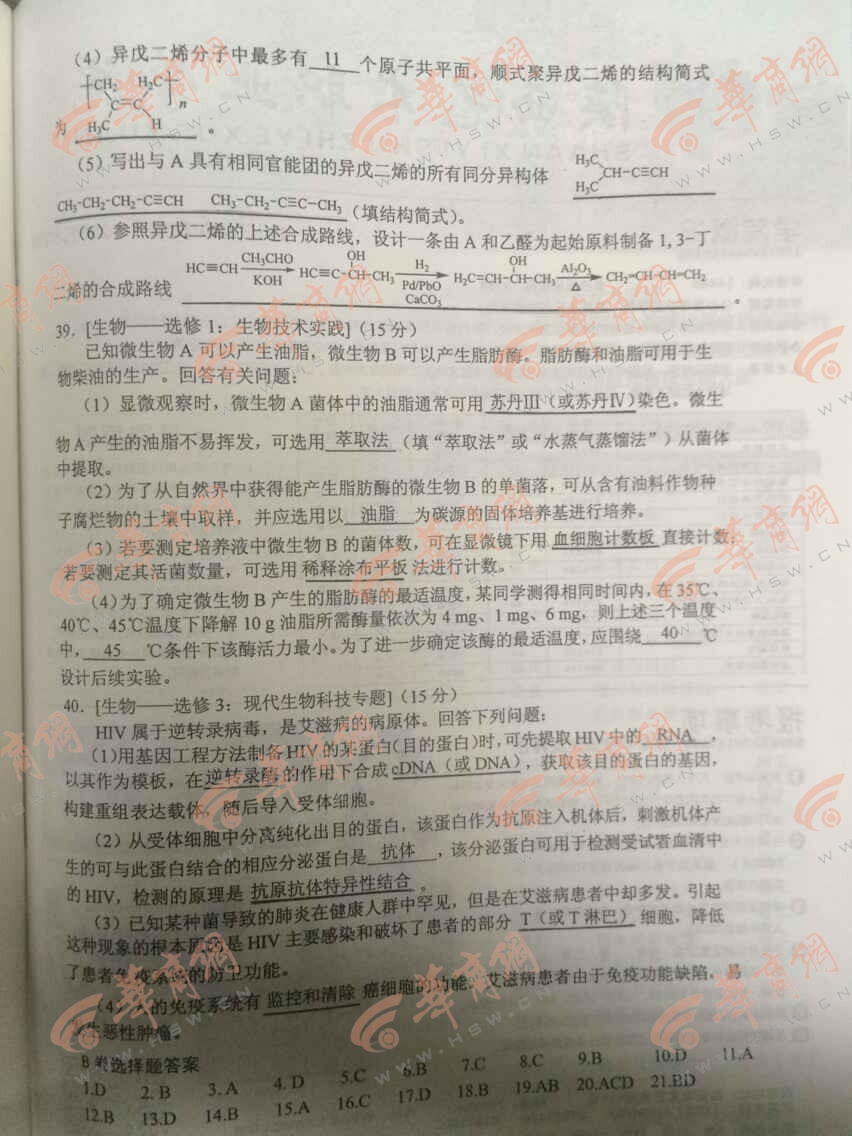 (4)异戊二烯分子中最多有 11 个原子共平面，顺式聚异戊二烯的结构简式
CH₂ H₂C
C=C n
为 H₃C H 。
(5)写出与 A 具有相同官能团的异戊二烯的所有同分异构体 H₃C CH-C≡CH H₃C
CH₃-CH₂-CH₂-C≡CH CH₃-CH₂-C≡C-CH₃ (填结构简式)。
(6)参照异戊二烯的上述合成路线，设计一条由 A 和乙醛为起始原料制备 1,3-丁
二烯的合成路线 HC≡CH CH₃CHO KOH HC≡C-CH-CH₃ OH H₂ Pd/PbO CaCO₃ H₂C=CH-CH-CH₃ OH Al₂O₃ △ CH₂=CH-CH=CH₂ 。
39. [生物——选修 1：生物技术实践]（15 分）
已知微生物 A 可以产生油脂，微生物 B 可以产生脂肪酶。脂肪酶和油脂可用于生
物柴油的生产。回答有关问题：
(1)显微观察时，微生物 A 菌体中的油脂通常可用 苏丹Ⅲ（或苏丹Ⅳ）染色。微生
物 A 产生的油脂不易挥发，可选用 萃取法 （填“萃取法”或“水蒸气蒸馏法”）从菌体
中提取。
(2)为了从自然界中获得能产生脂肪酶的微生物 B 的单菌落，可从含有油料作物种
子腐烂物的土壤中取样，并应选用以 油脂 为碳源的固体培养基进行培养。
(3)若要测定培养液中微生物 B 的菌体数，可在显微镜下用 血细胞计数板 直接计数；
若要测定其活菌数量，可选用 稀释涂布平板 法进行计数。
(4)为了确定微生物 B 产生的脂肪酶的最适温度，某同学测得相同时间内，在 35℃、
40℃、45℃温度下降解 10 g 油脂所需酶量依次为 4 mg、1 mg、6 mg，则上述三个温度
中， 45 ℃条件下该酶活力最小。为了进一步确定该酶的最适温度，应围绕 40 ℃
设计后续实验。
40. [生物——选修 3：现代生物科技专题]（15 分）
HIV 属于逆转录病毒，是艾滋病的病原体。回答下列问题：
(1)用基因工程方法制备 HIV 的某蛋白（目的蛋白）时，可先提取 HIV 中的 RNA ，
以其作为模板，在逆转录酶的作用下合成 cDNA（或 DNA），获取该目的蛋白的基因，
构建重组表达载体，随后导入受体细胞。
(2)从受体细胞中分离纯化出目的蛋白，该蛋白作为抗原注入机体后，刺激机体产
生的可与此蛋白结合的相应分泌蛋白是 抗体 ，该分泌蛋白可用于检测受试者血清中
的 HIV，检测的原理是 抗原抗体特异性结合 。
(3)已知某种菌导致的肺炎在健康人群中罕见，但是在艾滋病患者中却多发。引起
这种现象的根本原因是 HIV 主要感染和破坏了患者的部分 T（或 T 淋巴） 细胞，降低
了患者免疫系统的防卫功能。
(4)人的免疫系统有 监控和清除 癌细胞的功能。艾滋病患者由于免疫功能缺陷，易
发生恶性肿瘤。
B 卷选择题答案
1.D 2. B 3. A 4. D 5.C 6.B 7.C 8.C 9.B 10.D 11.A
12.B 13.D 14.B 15.A 16.C 17.D 18.B 19.AB 20.ACD 21.BD